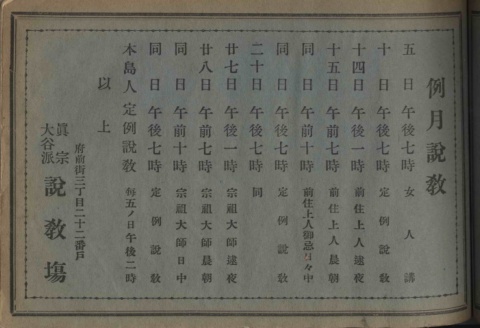 例月說教
五日 午後七時 女人講
十日 午後七時 定例說敎
十四日 午後一時 前住上人逮夜
十五日 午前七時 前住上人晨朝
同日 午前十時 前住上人御忌日々中
同日 午後七時 定例說敎
二十日 午後七時 同
廿七日 午後一時 宗祖大師逮夜
廿八日 午前七時 宗祖大師晨朝
同日 午前十時 宗祖大師日中
同日 午後七時 定例說敎
本島人定例說敎 每五ノ日午後二時
以上
府前街三丁目二十二番戶
眞宗大谷派 說敎塲